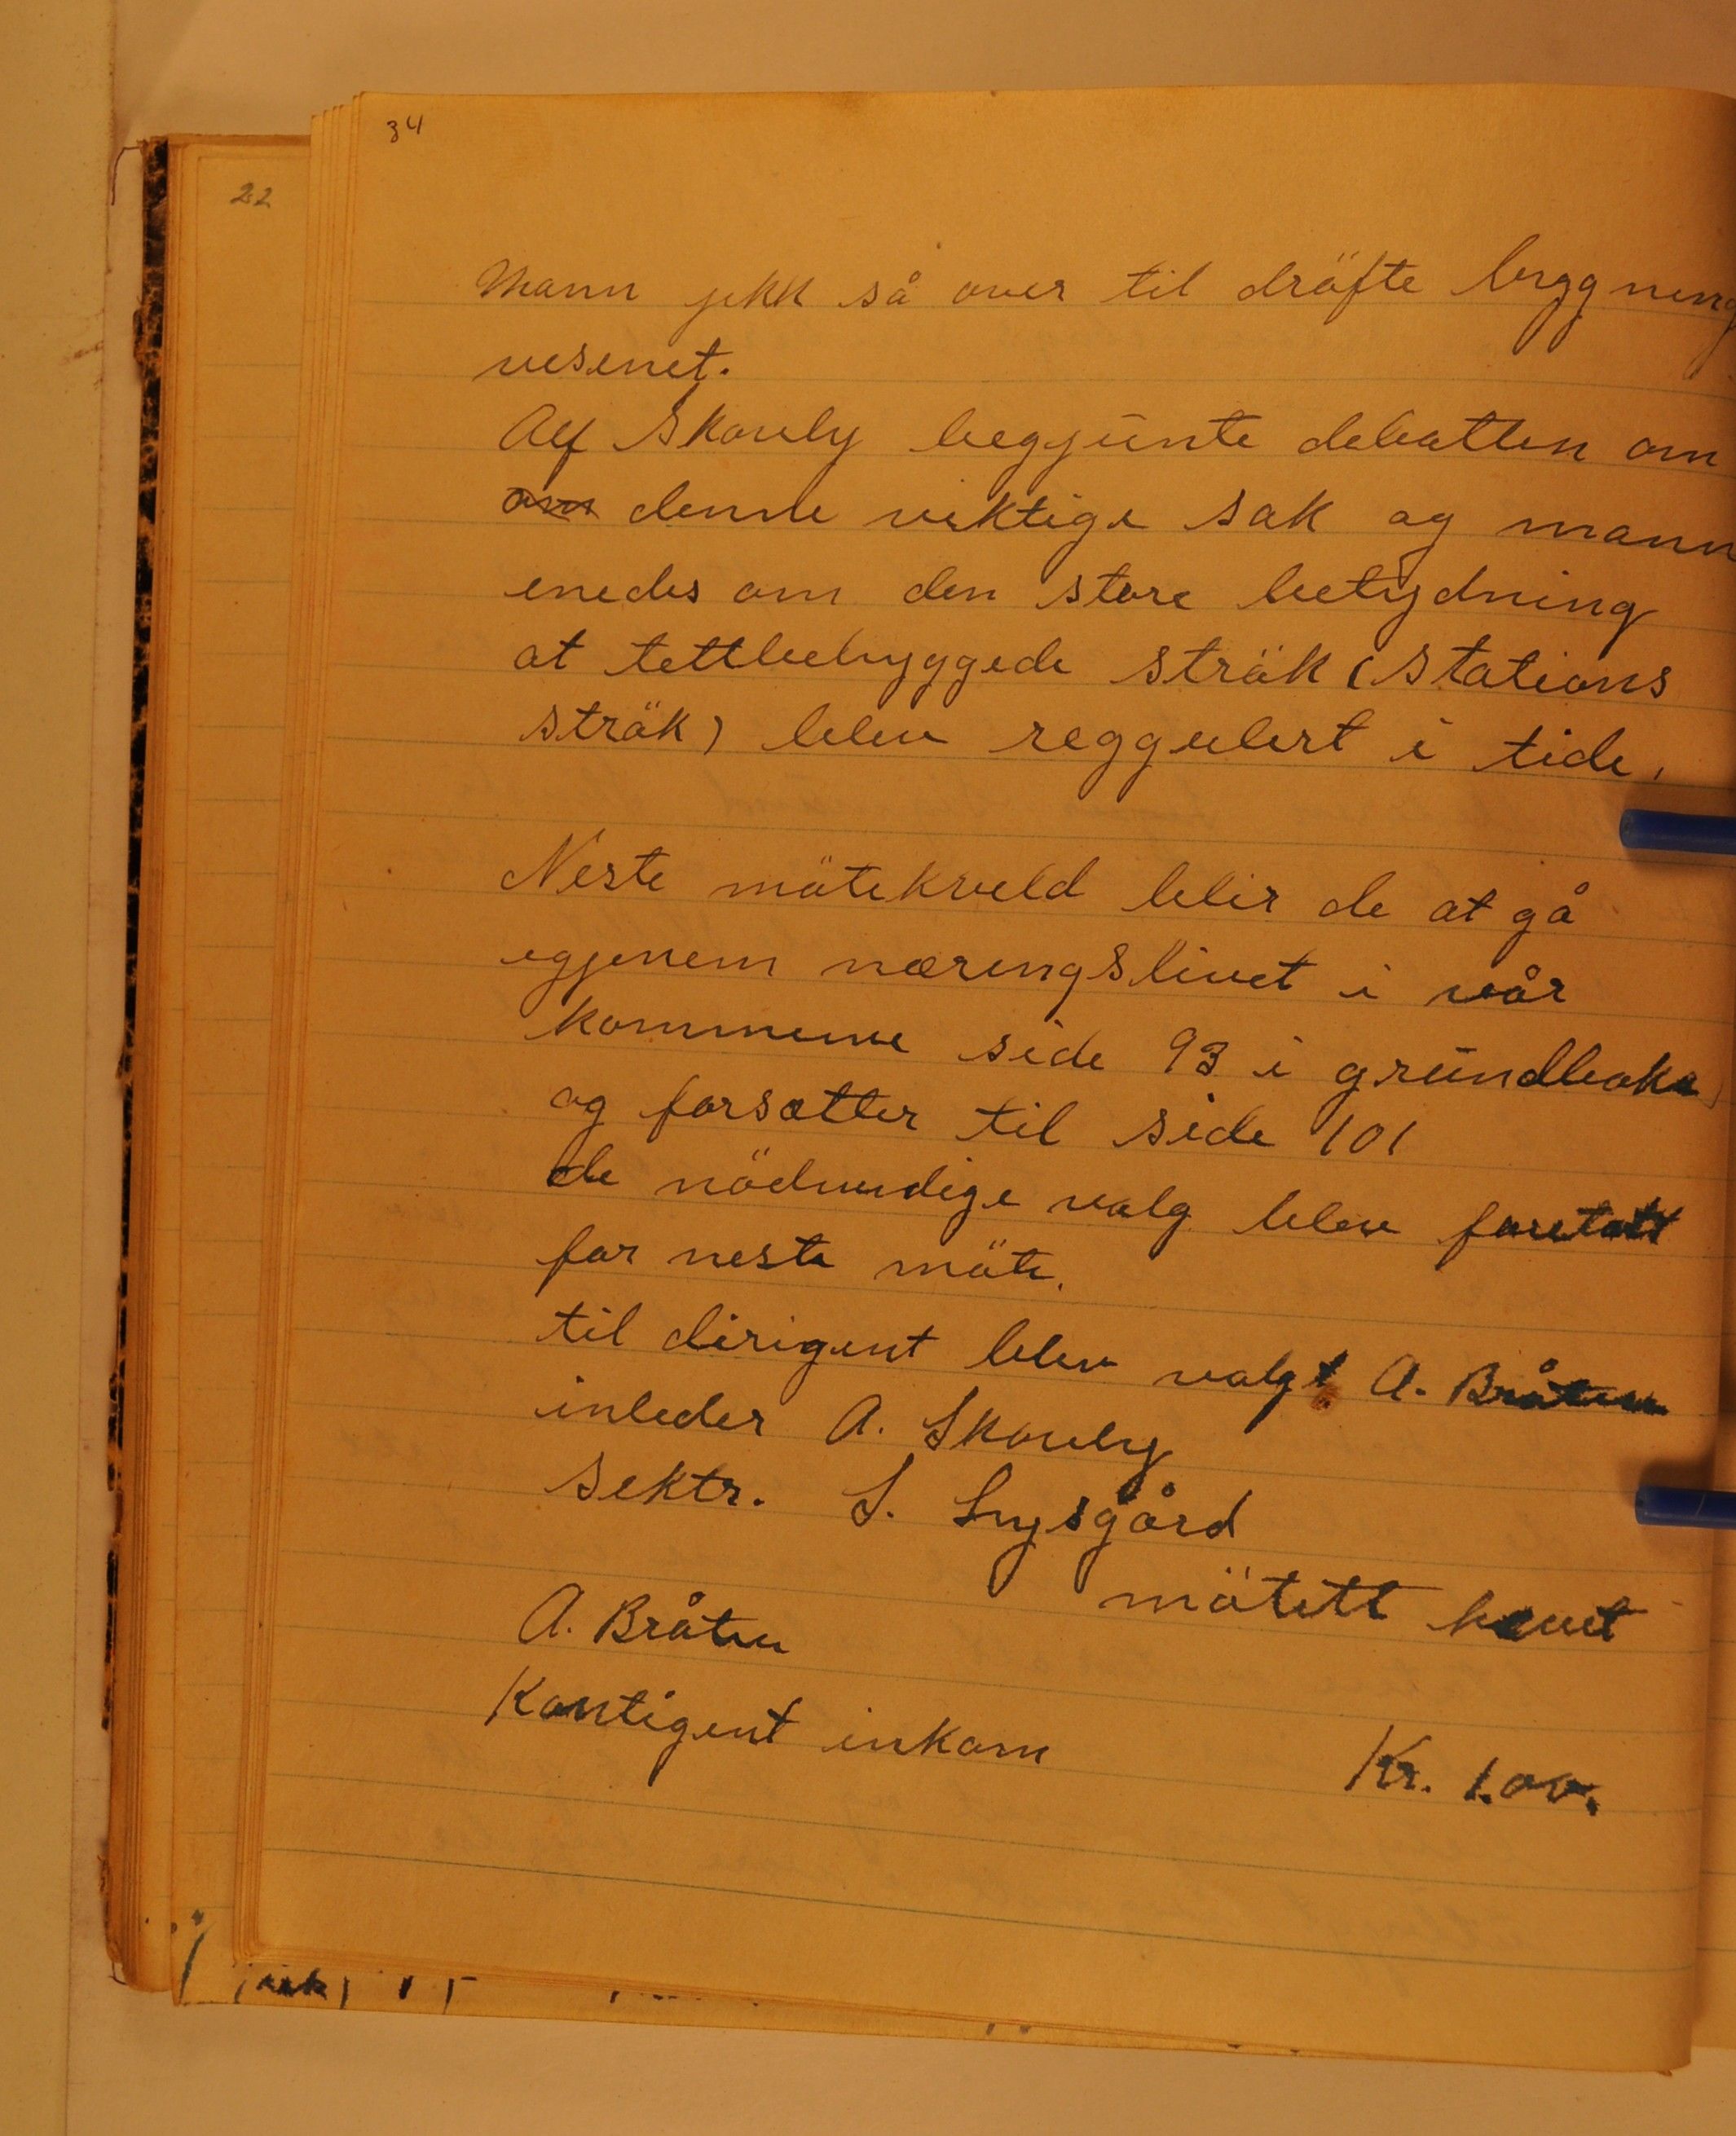 34
22
Mann jekk så over til dröfte byggning
vesenet.
Alf Skouly begjünte debatten om
om denne viktige sak og mann
enedes om den store betydning
at tettbebyggede sträk (stations
sträk) blev reggulert i tide.
Neste mötekveld blir de at gå
egjenem næringslivet i vår
kommune side 93 i gründboka
og forsætter til side 101
de nödvendige valg blev foretatt
for neste möte.
til dirigent blev valgt A. Bråten
inleder A. Skouly
sektr. S. Lysgård
mötett hevet
A. Bråten
Kontigent inkom Kr. 1.00.